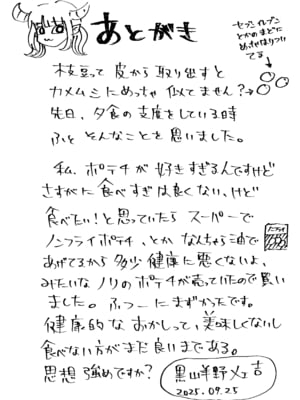 あとがき
セブンイレブン
とかのまどに
めっちゃはりつい
てる
枝豆って皮から取り出すと
カメムシにめっちゃ似てません?→
先日、夕食の支度をしている時
ふとそんなことを思いました。
私、ポテチが好きすぎるんですけど
さすがに食べすぎは良くない、けど
食べたい!と思っていたらスーパーで
ノンフライポテチ、とかなんちゃら油で
あげてるから多少健康に悪くないよ、
みたいなノリのポテチが売っていたので買い
ました。ふつーにまずかったです。
健康的なおかしって、美味しくないし
食べない方がまだ良いまである。
思想強めですか?
黒山羊野メェ吉
2025.09.25